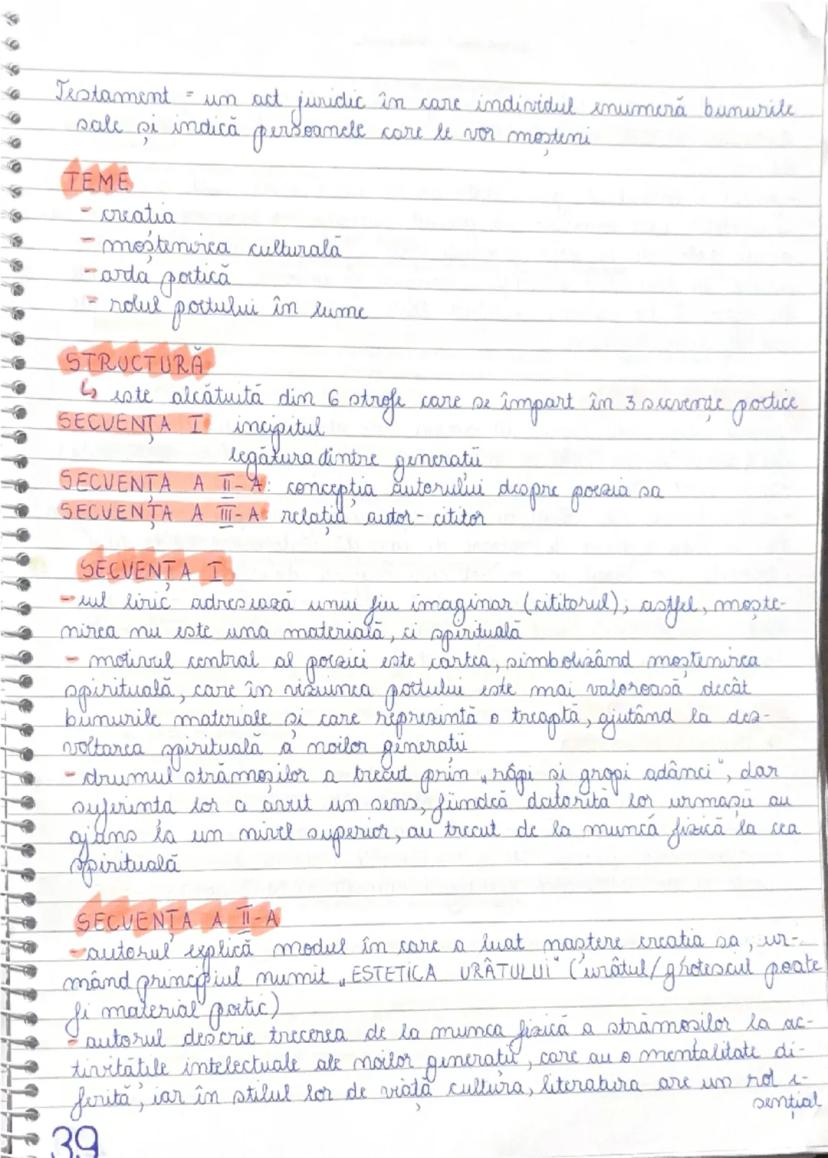 Testament = un act juridic în care individul enumeră bunurile
sale și indică persoanele care le vor moșteni
TEME
- creația
- moștenirea culturală
- arda poetică
- rolul poetului în lume
STRUCTURĂ
↳ este alcătuită din 6 strofe care se împart în 3 secvențe poetice
SECVENȚA I incipitul
legătura dintre generații
SECVENȚA A II-A: concepția autorului despre poezia sa
SECVENȚA A III-A relația autor-cititor
SECVENȚA I
- eul liric adresează unui fiu imaginar (cititorul); astfel, moște-
nirea nu este una materială, ci spirituală
- motivul central al poeziei este cartea, simbolizând moștenirea
spirituală, care în viziunea poetului este mai valoroasă decât
bunurile materiale și care reprezintă o treaptă, ajutând la dez-
voltarea spirituală a noilor generații
- drumul strămoșilor a trecut prin „râpi și gropi adânci", dar
suferința lor a avut un sens, fiindcă datorită lor urmașii au
ajuns la un nivel superior, au trecut de la muncă fizică la cea
spirituală
SECVENȚA A II-A
- autorul explică modul în care a luat naștere creația sa, ur-
mând principiul numit „ESTETICA URÂTULUI" (urâtul/grotescul poate
fi material poetic)
- autorul descrie trecerea de la munca fizică a strămoșilor la ac-
tivitățile intelectuale ale noilor generații, care au o mentalitate di-
ferită, iar în stilul lor de viață cultura, literatura are un rol e-
sențial
39